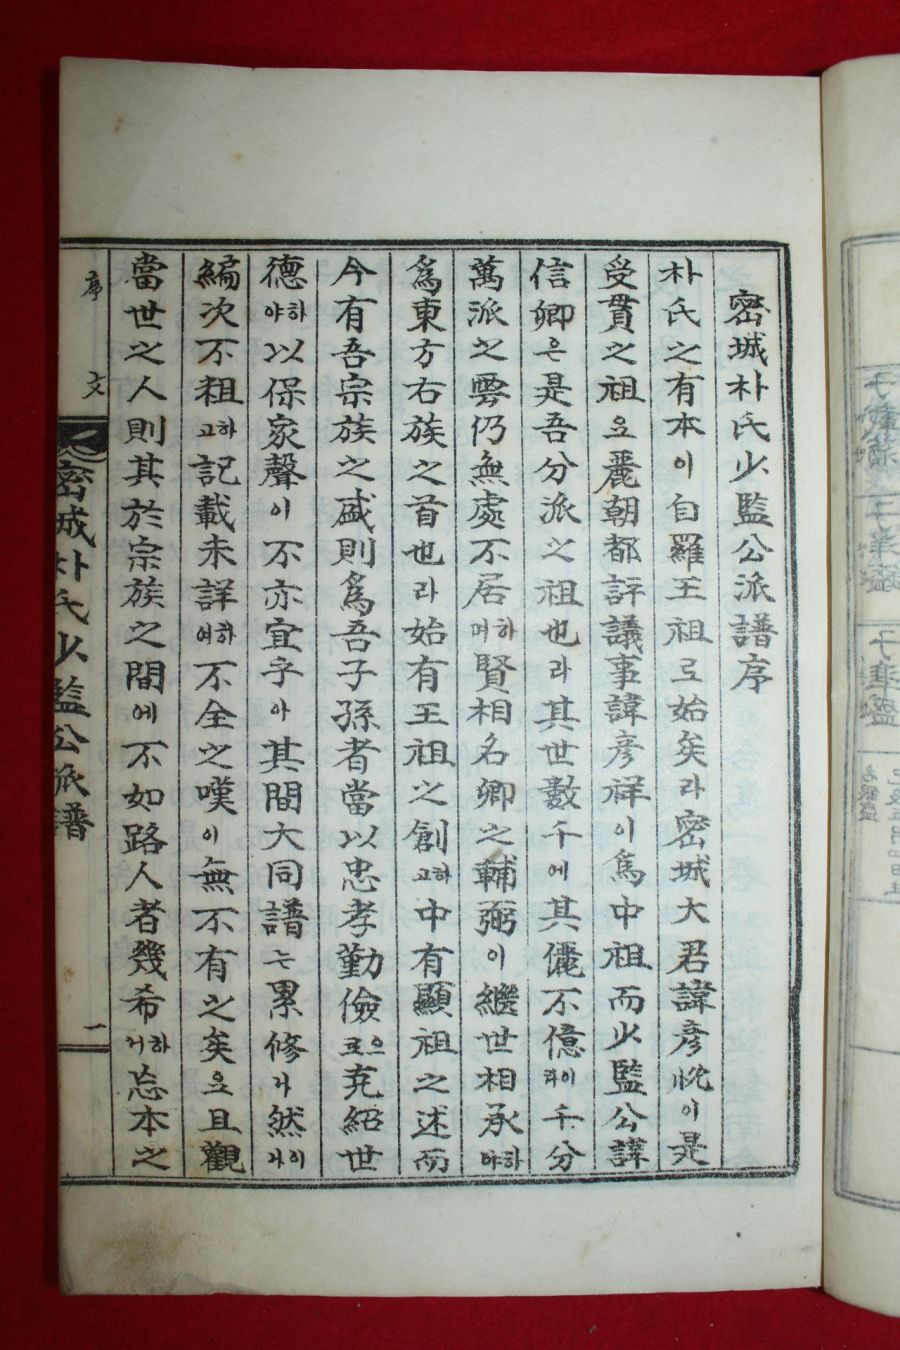 密城朴氏少監公派譜序
朴氏之有本이自羅王祖로始矣라密城大君諱彦忱이是
受貫之祖요麗朝都評議事諱彦祥이爲中祖而少監公諱
信卿은是吾分派之祖也라其世數千에其儷不億이라千分
萬派之雲仍無處不居하며賢相名卿之輔弼이繼世相承하야
爲東方右族之首也라始有王祖之創하고中有顯祖之述而
今有吾宗族之盛則爲吾子孫者當以忠孝勤儉으로克紹世
德하야以保家聲이不亦宜乎아其間大同譜는累修나然이나
編次不粗하고記載未詳하여不全之嘆이無不有之矣요且觀
當世之人則其於宗族之間에不如路人者幾希하니忘本之
序文
密城朴氏少監公派譜
一